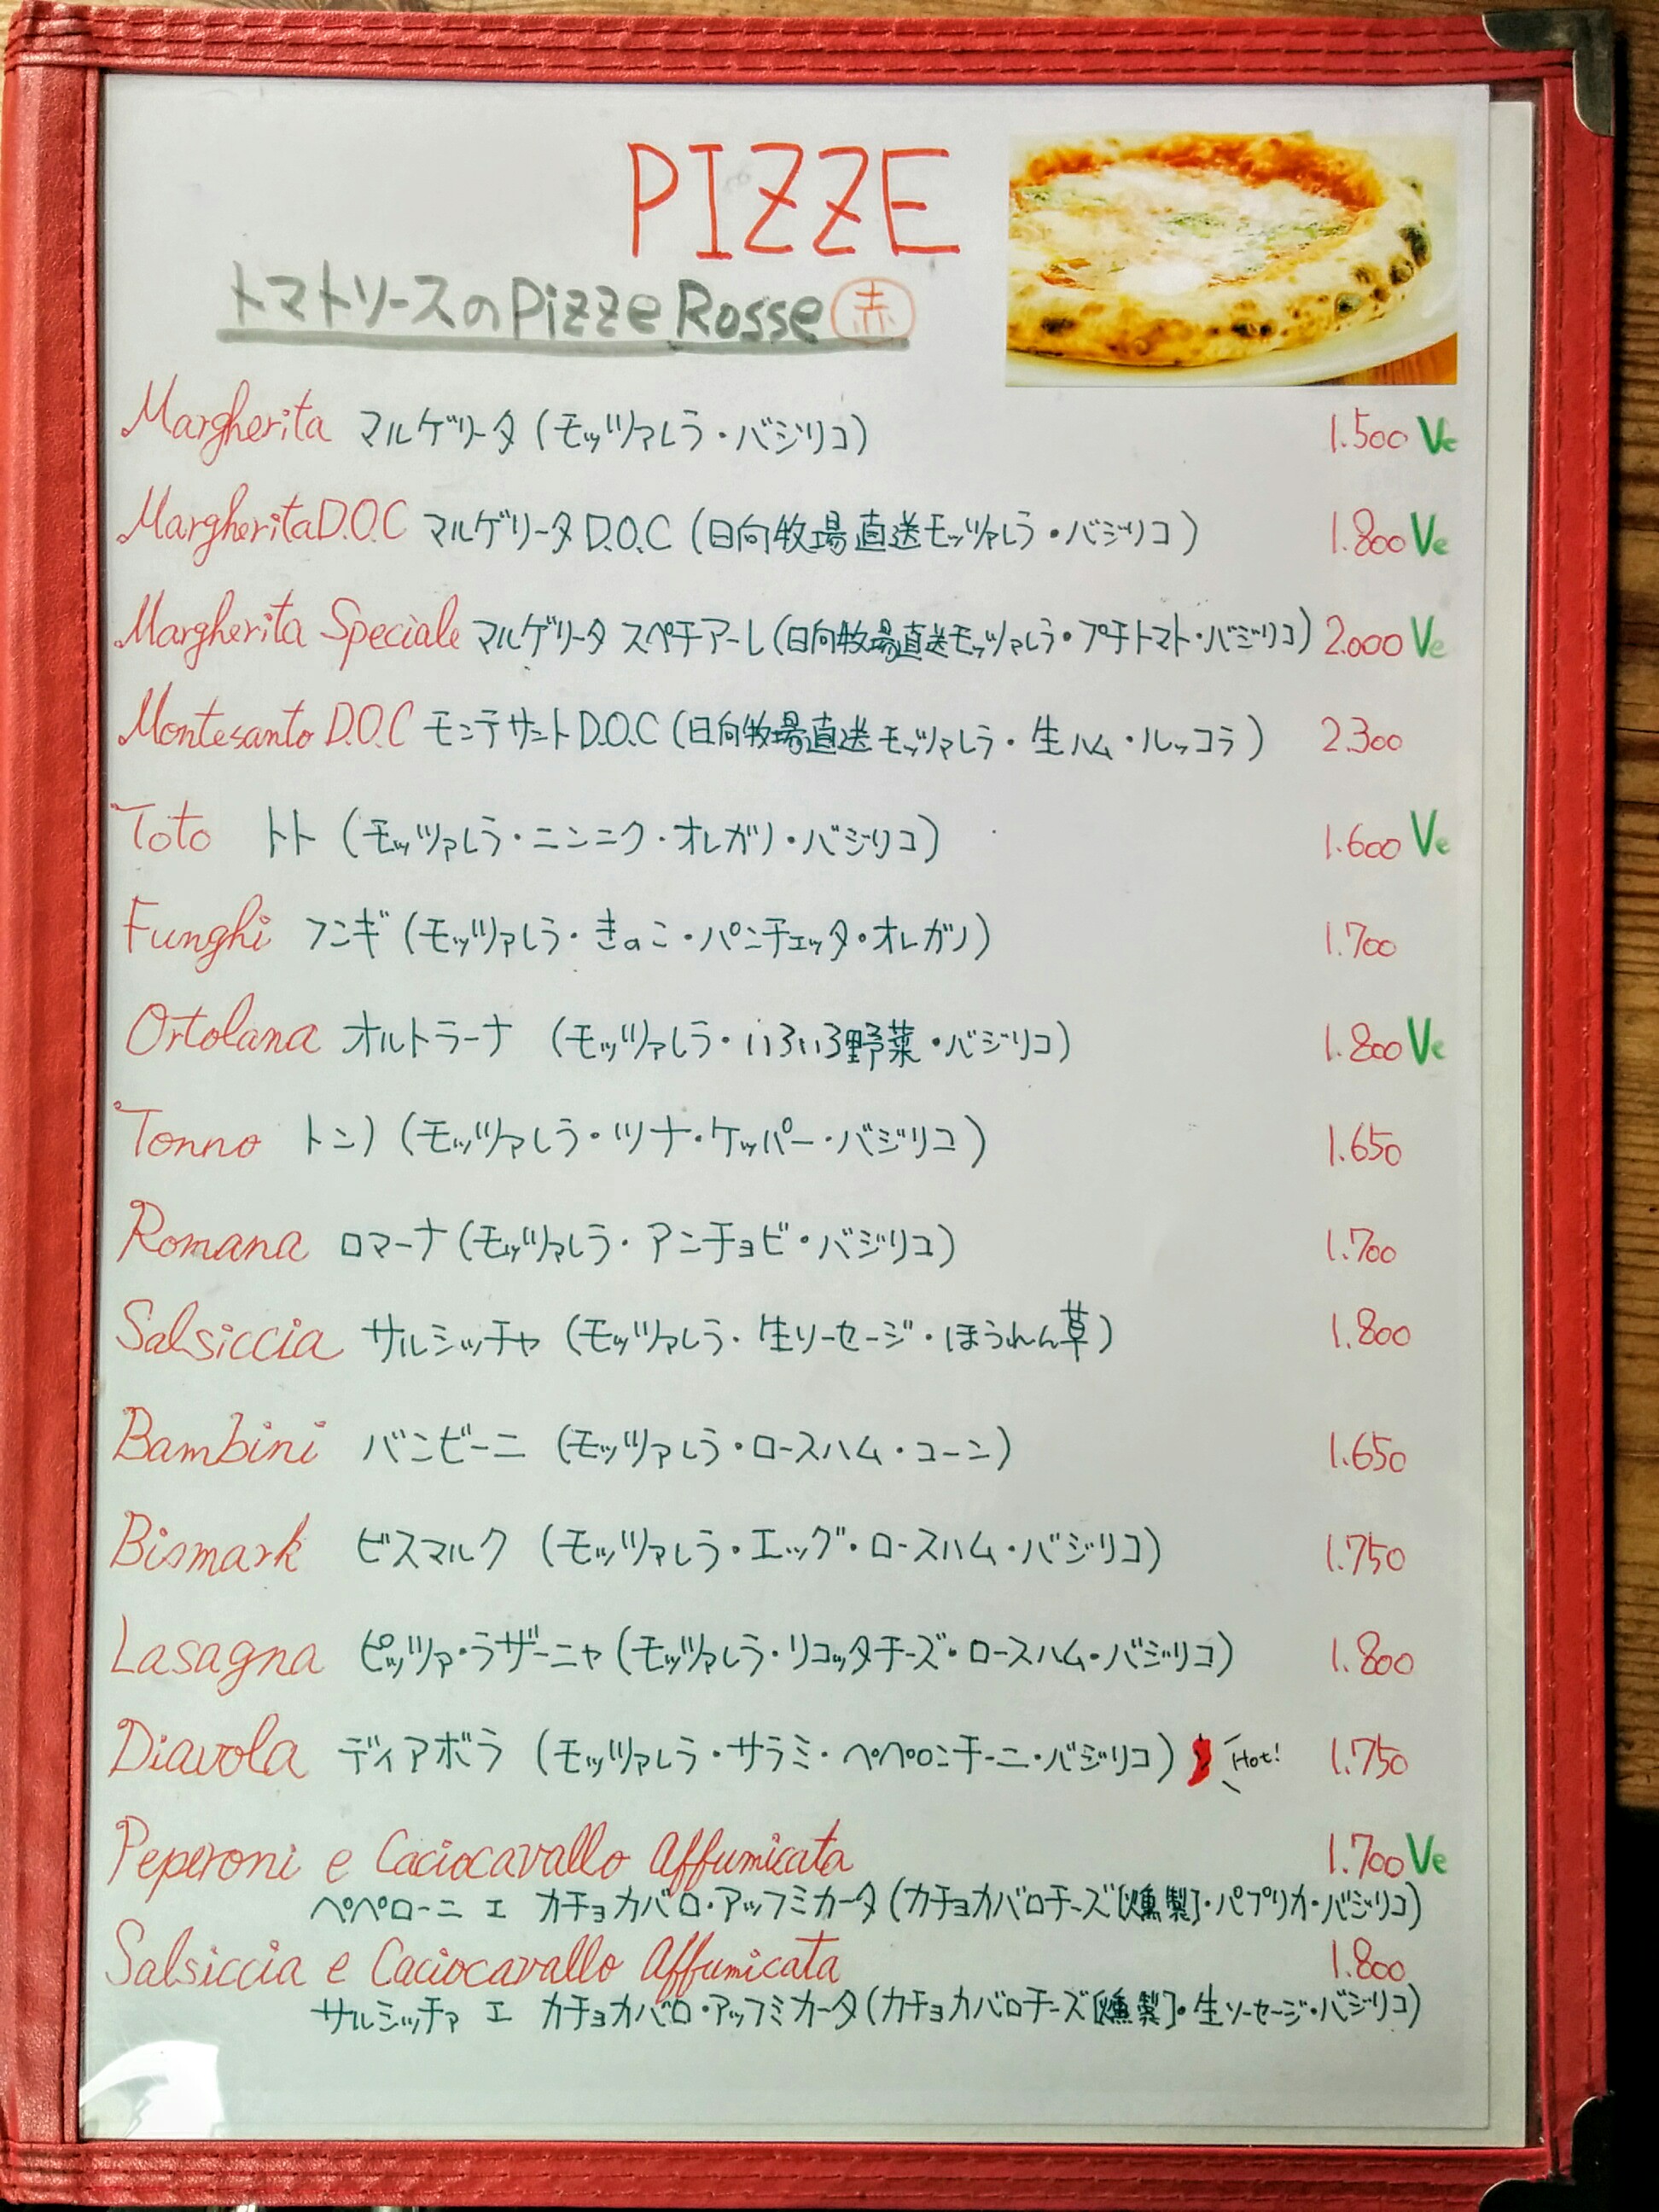 PIZZE
トマトソースのPizze Rosse 赤
Margherita マルゲリータ (モッツァレラ・バジリコ) 1.500 Ve
Margherita D.O.C マルゲリータ D.O.C (日向牧場直送モッツァレラ・バジリコ) 1.800 Ve
Margherita Speciale マルゲリータ スペチアーレ (日向牧場直送モッツァレラ・プチトマト・バジリコ) 2.000 Ve
Montesanto D.O.C モンテサントD.O.C (日向牧場直送モッツァレラ・生ハム・ルッコラ) 2.300
Toto トト (モッツァレラ・ニンニク・オレガノ・バジリコ) 1.600 Ve
Funghi フンギ (モッツァレラ・きのこ・パンチェッタ・オレガノ) 1.700
Ortolana オルトラーナ (モッツァレラ・いろいろ野菜・バジリコ) 1.800 Ve
Tonno トンノ (モッツァレラ・ツナ・ケッパー・バジリコ) 1.650
Romana ロマーナ (モッツァレラ・アンチョビ・バジリコ) 1.700
Salsiccia サルシッチャ (モッツァレラ・生ソーセージ・ほうれん草) 1.800
Bambini バンビーニ (モッツァレラ・ロースハム・コーン) 1.650
Bismark ビスマルク (モッツァレラ・エッグ・ロースハム・バジリコ) 1.750
Lasagna ピッツァ・ラザーニャ (モッツァレラ・リコッタチーズ・ロースハム・バジリコ) 1.800
Diavola ディアボラ (モッツァレラ・サラミ・ペペロンチーニ・バジリコ) Hot! 1.750
Peperoni e Caciocavallo Affumicata 1.700 Ve
ペペローニ エ カチョカバロ・アッフミカータ (カチョカバロチーズ[燻製]・パプリカ・バジリコ)
Salsiccia e Caciocavallo Affumicata 1.800
サルシッチァ エ カチョカバロ・アッフミカータ (カチョカバロチーズ[燻製]・生ソーセージ・バジリコ)